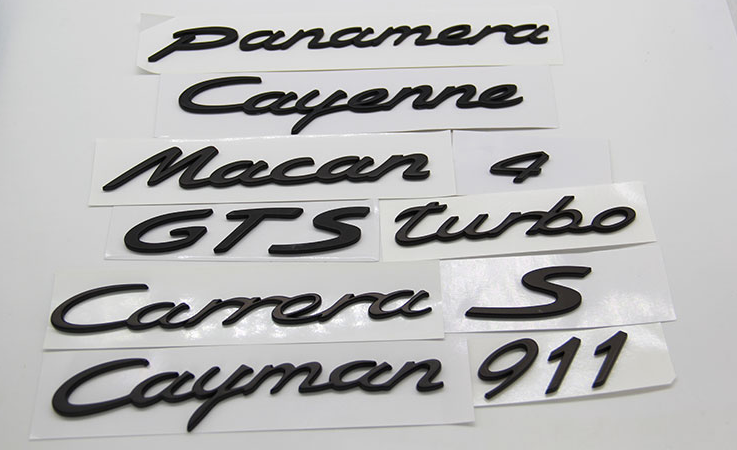 Panamera
Cayenne
Macan 4
GTS turbo
Carrera S
Cayman 911